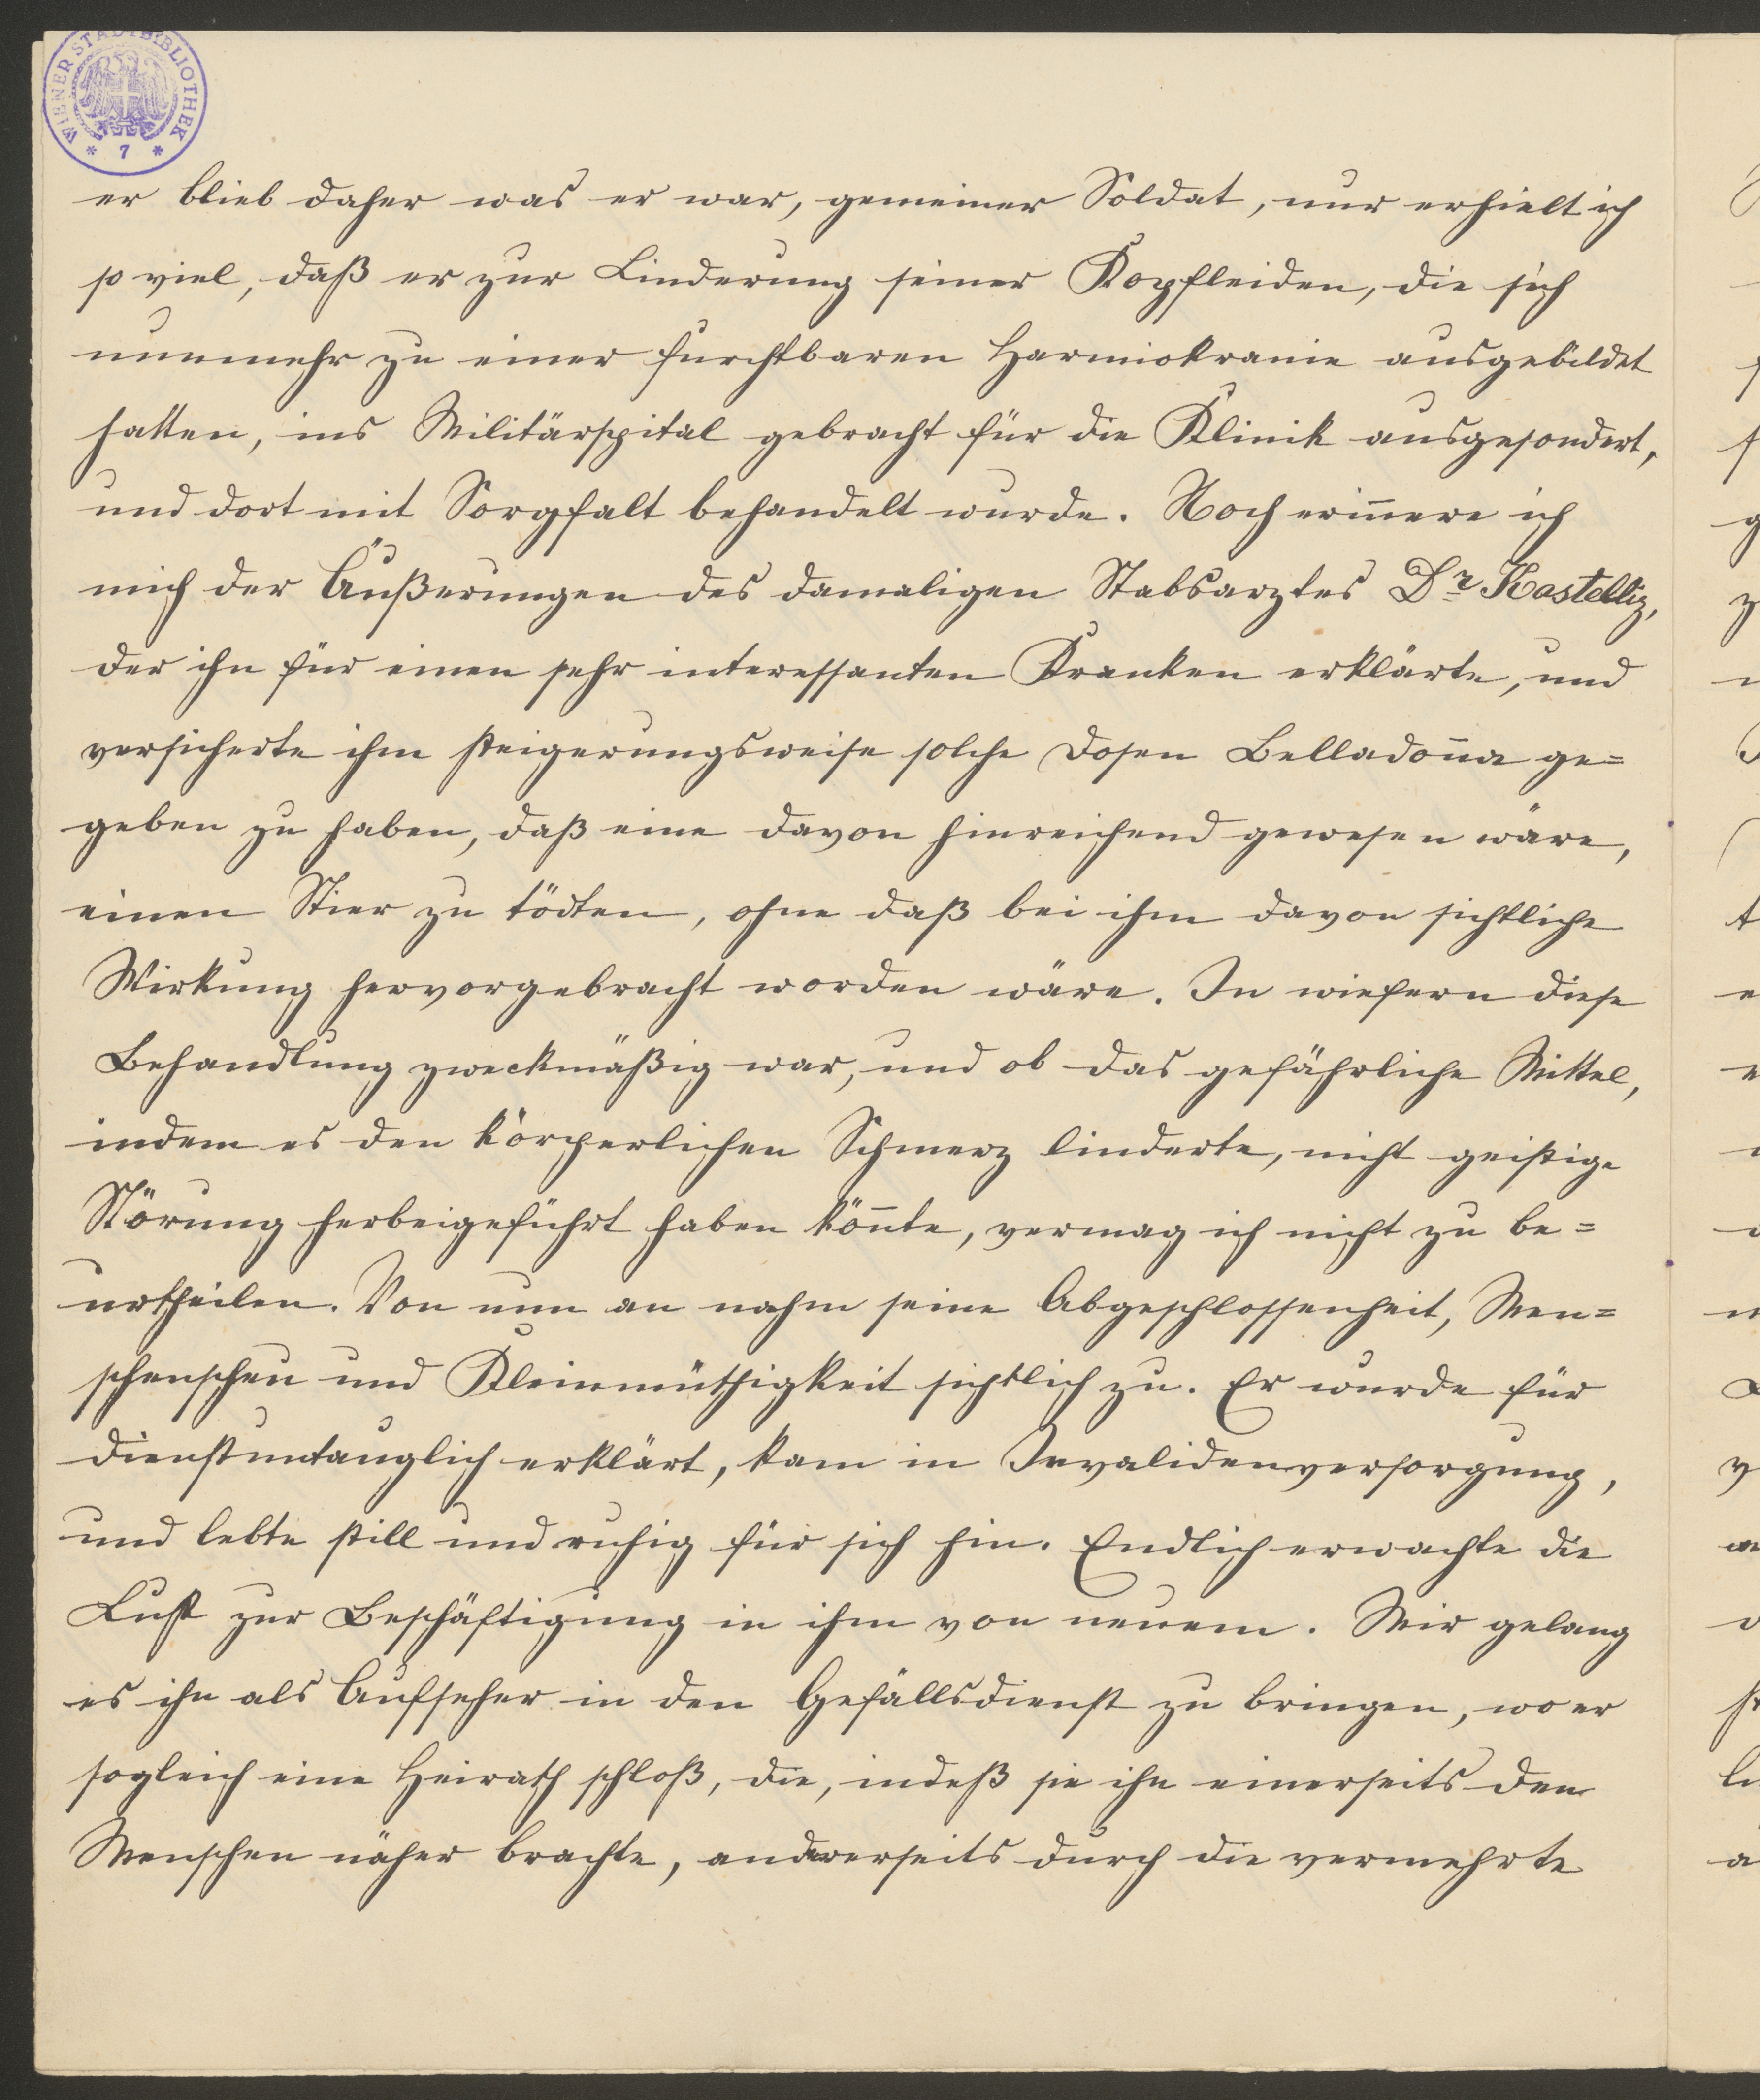 WIENER STADTBIBLIOTHEK
* 7 *
er blieb daher was er war, gemeiner Soldat, nur erhielt ich
so viel, daß er zur Linderung seiner Kopfleiden, die sich
nunmehr zu einer furchtbaren Harmiokranie ausgebildet
hatten, ins Militärspital gebracht für die Klinik ausgesondert,
und dort mit Sorgfalt behandelt wurde. Noch eriñere ich
mich der Äußerungen des damaligen Stabsarztes Dr Kastelliz,
der ihn für einen sehr interessanten Kranken erklärte, und
versicherte ihm steigerungsweise solche Dosen Belladoña ge=
geben zu haben, daß eine davon hinreichend gewesen wäre,
einen Stier zu tödten, ohne daß bei ihm davon sichtliche
Wirkung hervorgebracht worden wäre. In wiefern diese
Behandlung zweckmäßig war, und ob das gefährliche Mittel,
indem es den körperlichen Schmerz linderte, nicht geistige
Störung herbeigeführt haben köñte, vermag ich nicht zu be=
urtheilen. Von nun an nahm seine Abgeschlossenheit, Men=
schenscheu und Kleinmüthigkeit sichtlich zu. Er wurde für
dienstuntauglich erklärt, kam in Invalidenversorgung,
und lebte still und ruhig für sich hin. Endlich erwachte die
Lust zur Beschäftigung in ihm von neuem. Mir gelang
es ihn als Aufseher in den Gefällsdienst zu bringen, wo er
sogleich eine Heirath schloß, die, indeß sie ihn einerseits den
Menschen näher brachte, andererseits durch die vermehrte